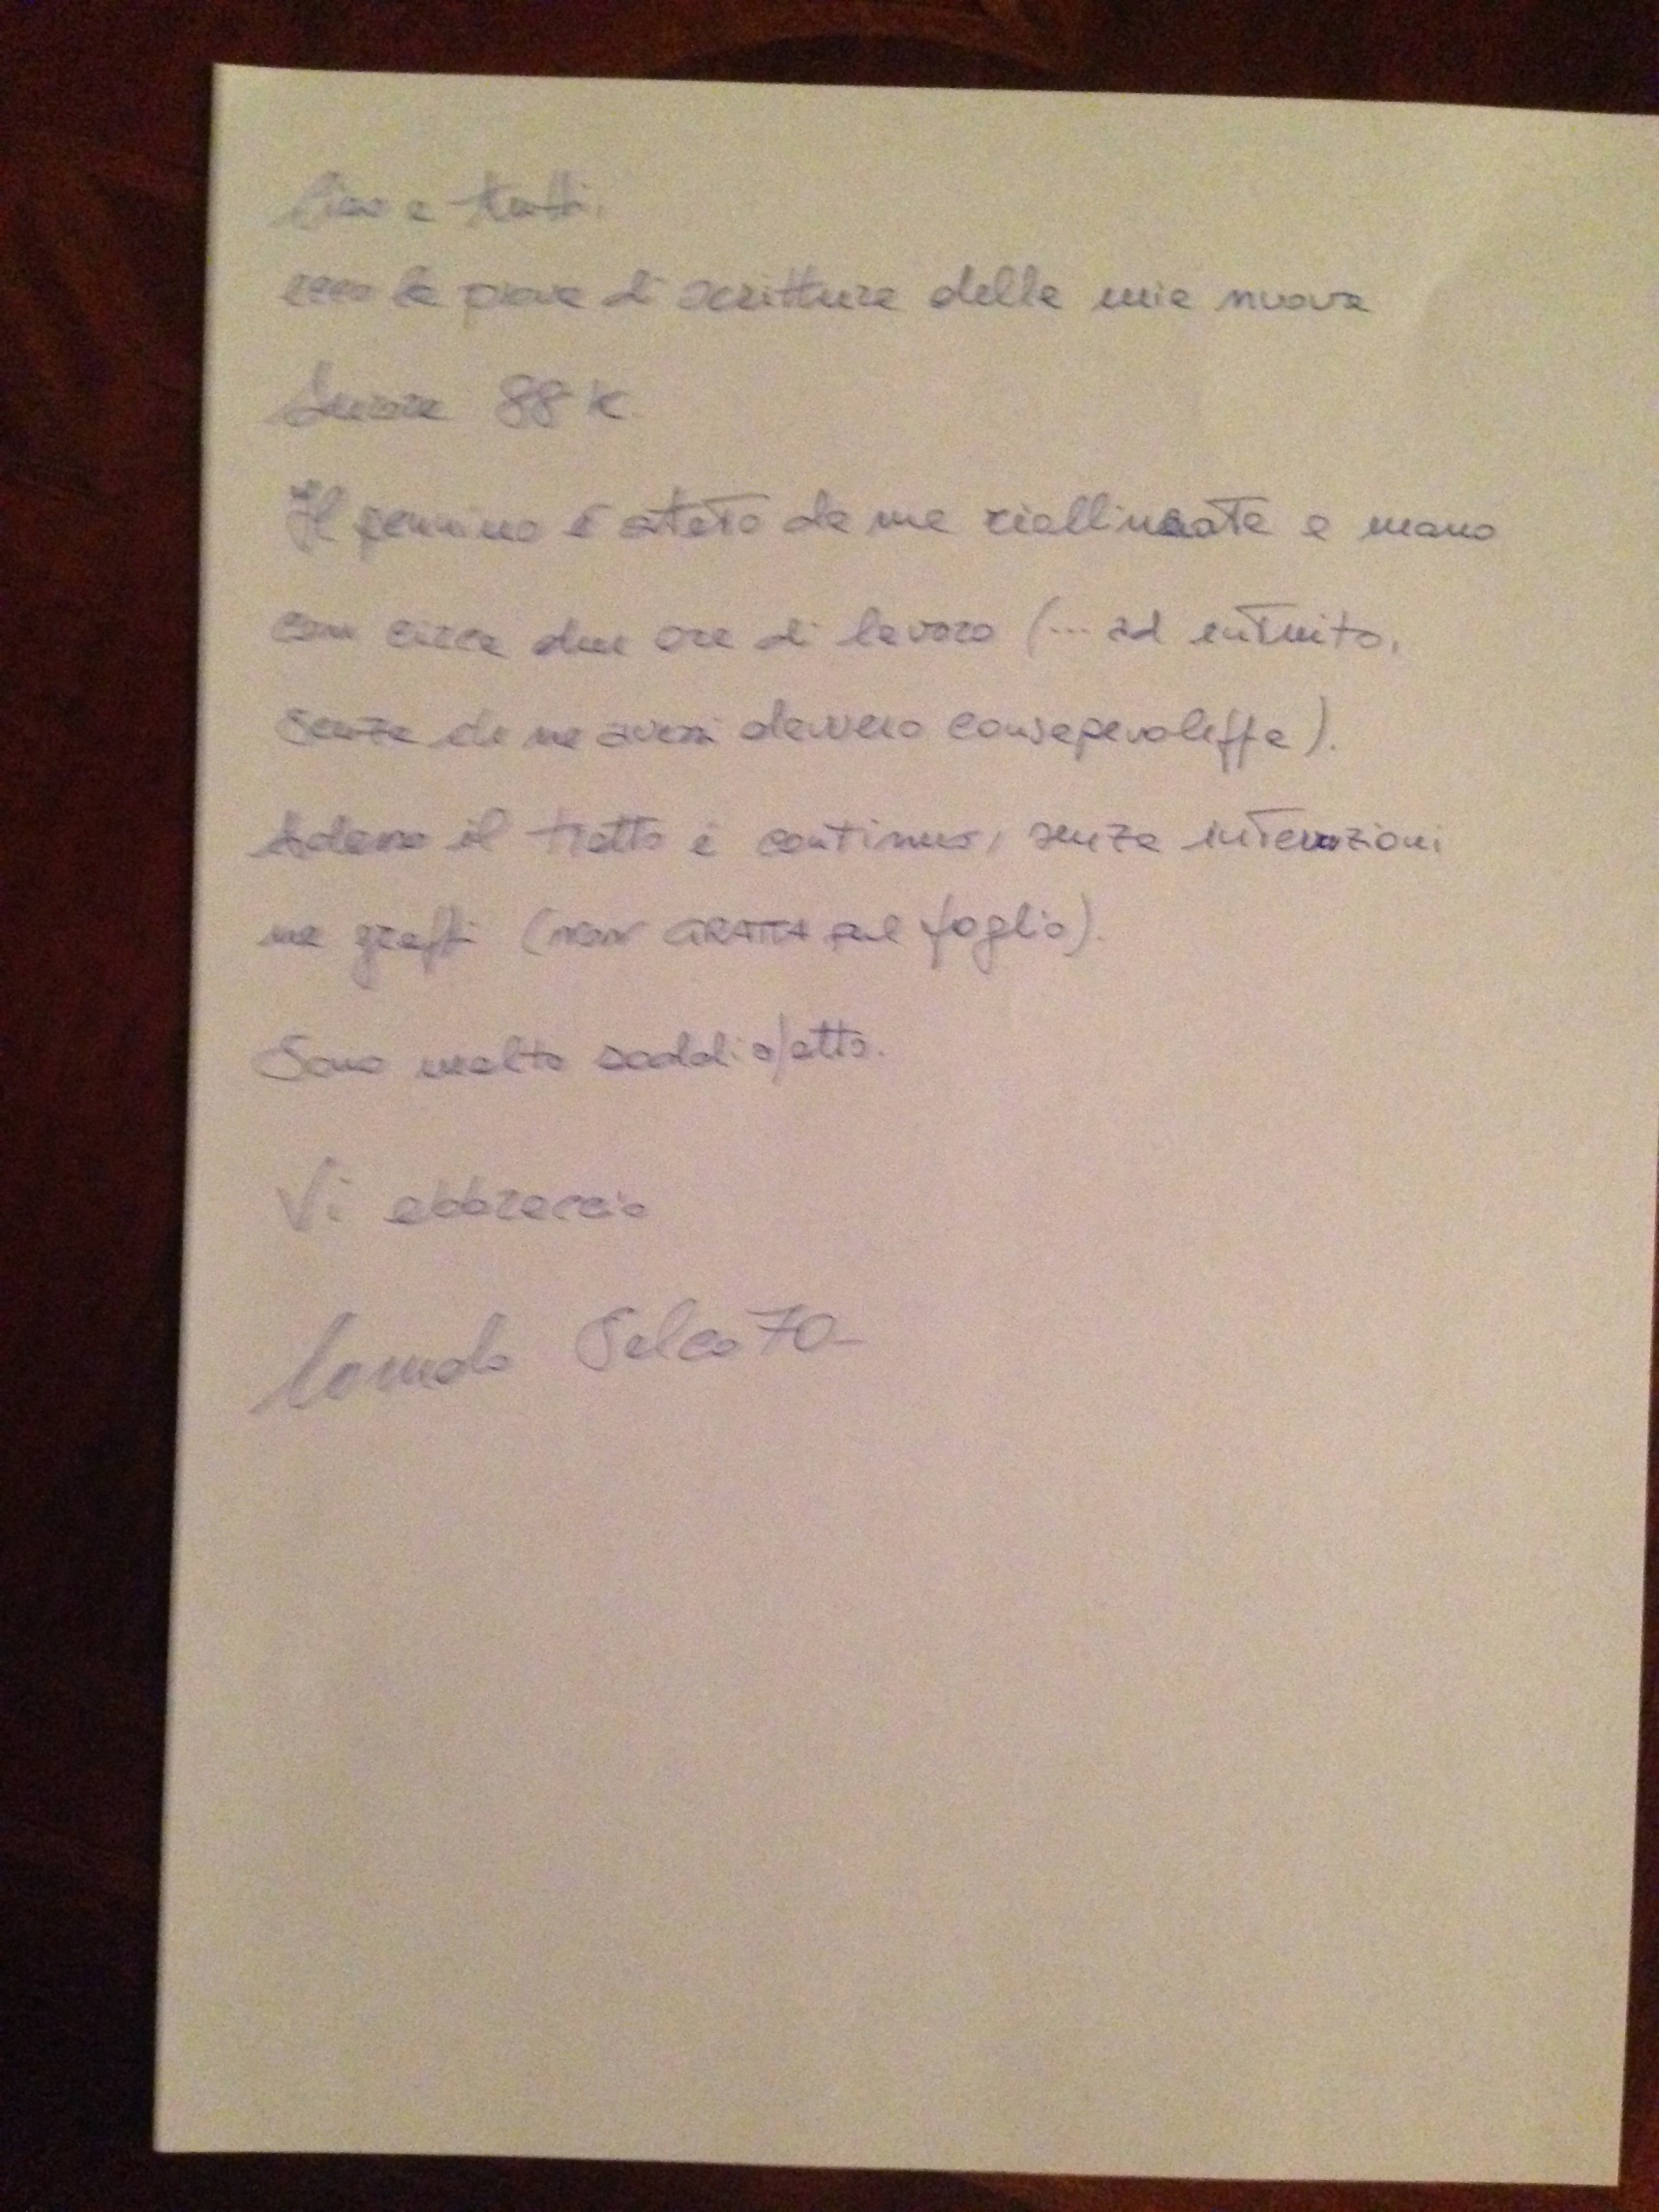 Ciao a tutti,
ecco la prova di scrittura della mia nuova
Aurora 88 K.
Il pennino è stato da me riallineato a mano
con circa due ore di lavoro (... ad intuito,
senza che ne avessi davvero consapevolezza).
Adesso il tratto è continuo, senza interruzioni
ne graffi (non GRATTA sul foglio).
Sono molto soddisfatto.
Vi abbraccio
Selca 70